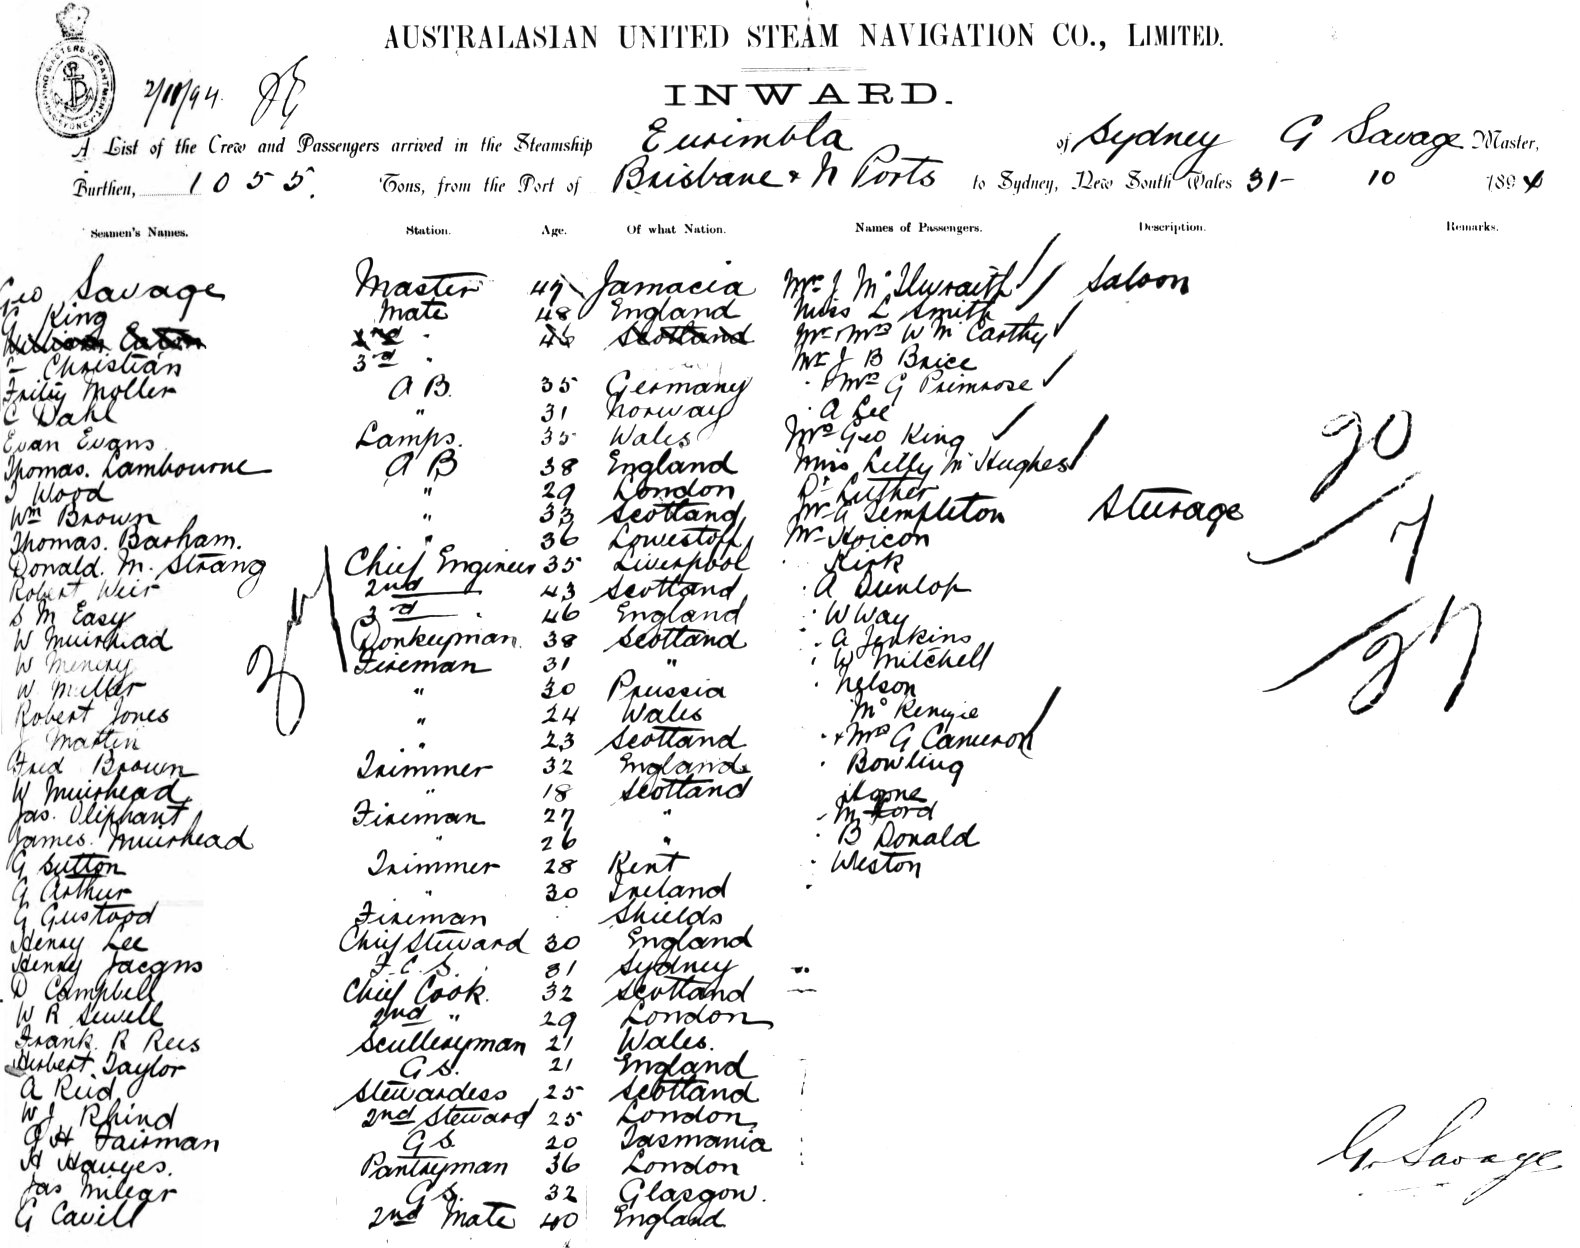 AUSTRALASIAN UNITED STEAM NAVIGATION CO., LIMITED.
INWARD.
2/10/94.
A List of the Crew and Passengers arrived in the Steamship Eurimbla of Sydney G Savage Master,
Burthen, 1055. Tons, from the Port of Brisbane & N Ports to Sydney, New South Wales 31- 10 1894
Seamen's Names. Station. Age. Of what Nation. Names of Passengers. Description. Remarks.
Geo Savage Master 47 Jamacia Mr J McIlwraith Saloon
G King Mate 48 England Miss L Smith
William Eaton 2nd " 46 Scotland Mr & Mrs W McCarthy
Christian 3rd " Mr J B Brice
Moller A B. 35 Germany " & Mrs G Primrose
C Dahl " 31 Norway " A Lee
Evan Evans Lamps. 35 Wales Mrs Geo King
Thomas. Lambourne A B 38 England Miss Letty McHughes
20
J Wood " 29 London Dr Luther
Wm Brown " 33 Scotland Mr A Templeton Sturage
Thomas. Barham. " 36 Lowestoff Mr Horcon
7
Donald. M. Strang Chief Engineer 35 Liverpool " Kirk
Robert Weir 2nd 43 Scotland " A Dunlop
S M Easy 3rd 46 England " W Way
W Muirhead Donkeyman 38 Scotland " A Jenkins
27
W Menery Fireman 31 " " W Mitchell
W Miller " 30 Prussia " Nelson
Robert Jones " 24 Wales McKenzie
J Martin " 23 Scotland " & Mrs G Cameron
Fred Brown Trimmer 32 England " Bowling
W Muirhead " 18 Scotland
Jas. Oliphant Fireman 27 " " M Ford
James Muirhead " 26 " " B Donald
G Sutton Trimmer 28 Kent " Weston
G Arthur " 30 Ireland "
G Gustood Fireman Shields
Henry Lee Chief Steward 30 England
Henry Jacgns F. C. S. 31 Sydney
D Campbell Chief Cook. 32 Scotland
W R Sewell 2nd " 29 London
Frank R Rees Sculleryman 21 Wales.
Herbert Taylor G S. 21 England
A Reid Stewardess 25 Scotland
W J Rhind 2nd Steward 25 London
G H Fairman G S. 20 Tasmania
H Hauyes. Pantryman 36 London
G. Savage
Jas Milegr G S. 32 Glasgow.
G Cavill 2nd Mate 40 England